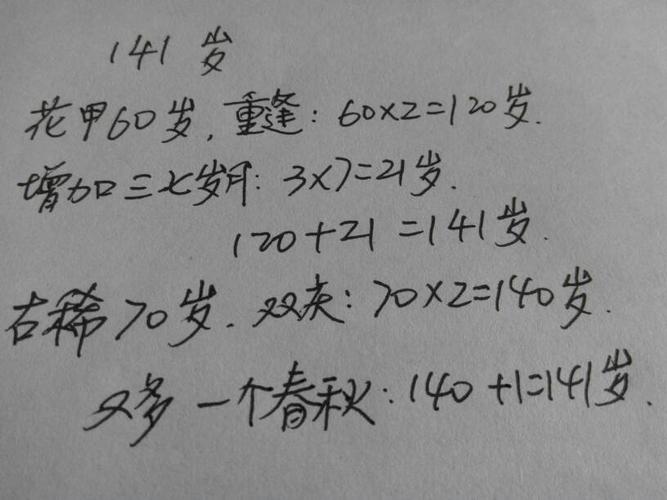 141 岁
花甲60岁,重逢:60×2=120岁.
增加三七岁月:3×7=21岁.
120+21=141岁.
古稀70岁.双庆:70×2=140岁.
又多一个春秋:140+1=141岁.